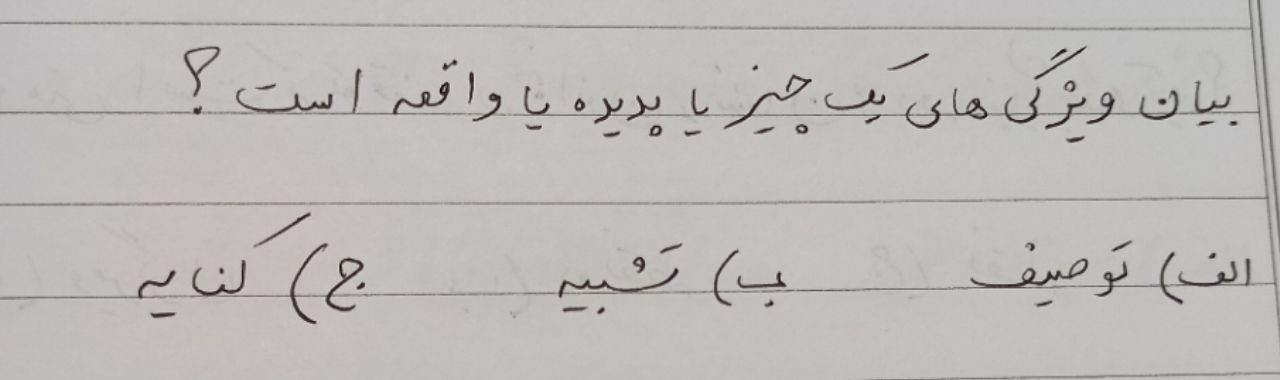 بیان ویژگی های یک چیز یا پدیده یا واقعه است ؟
الف) توصیف ب) تشبیه ج) کنایه